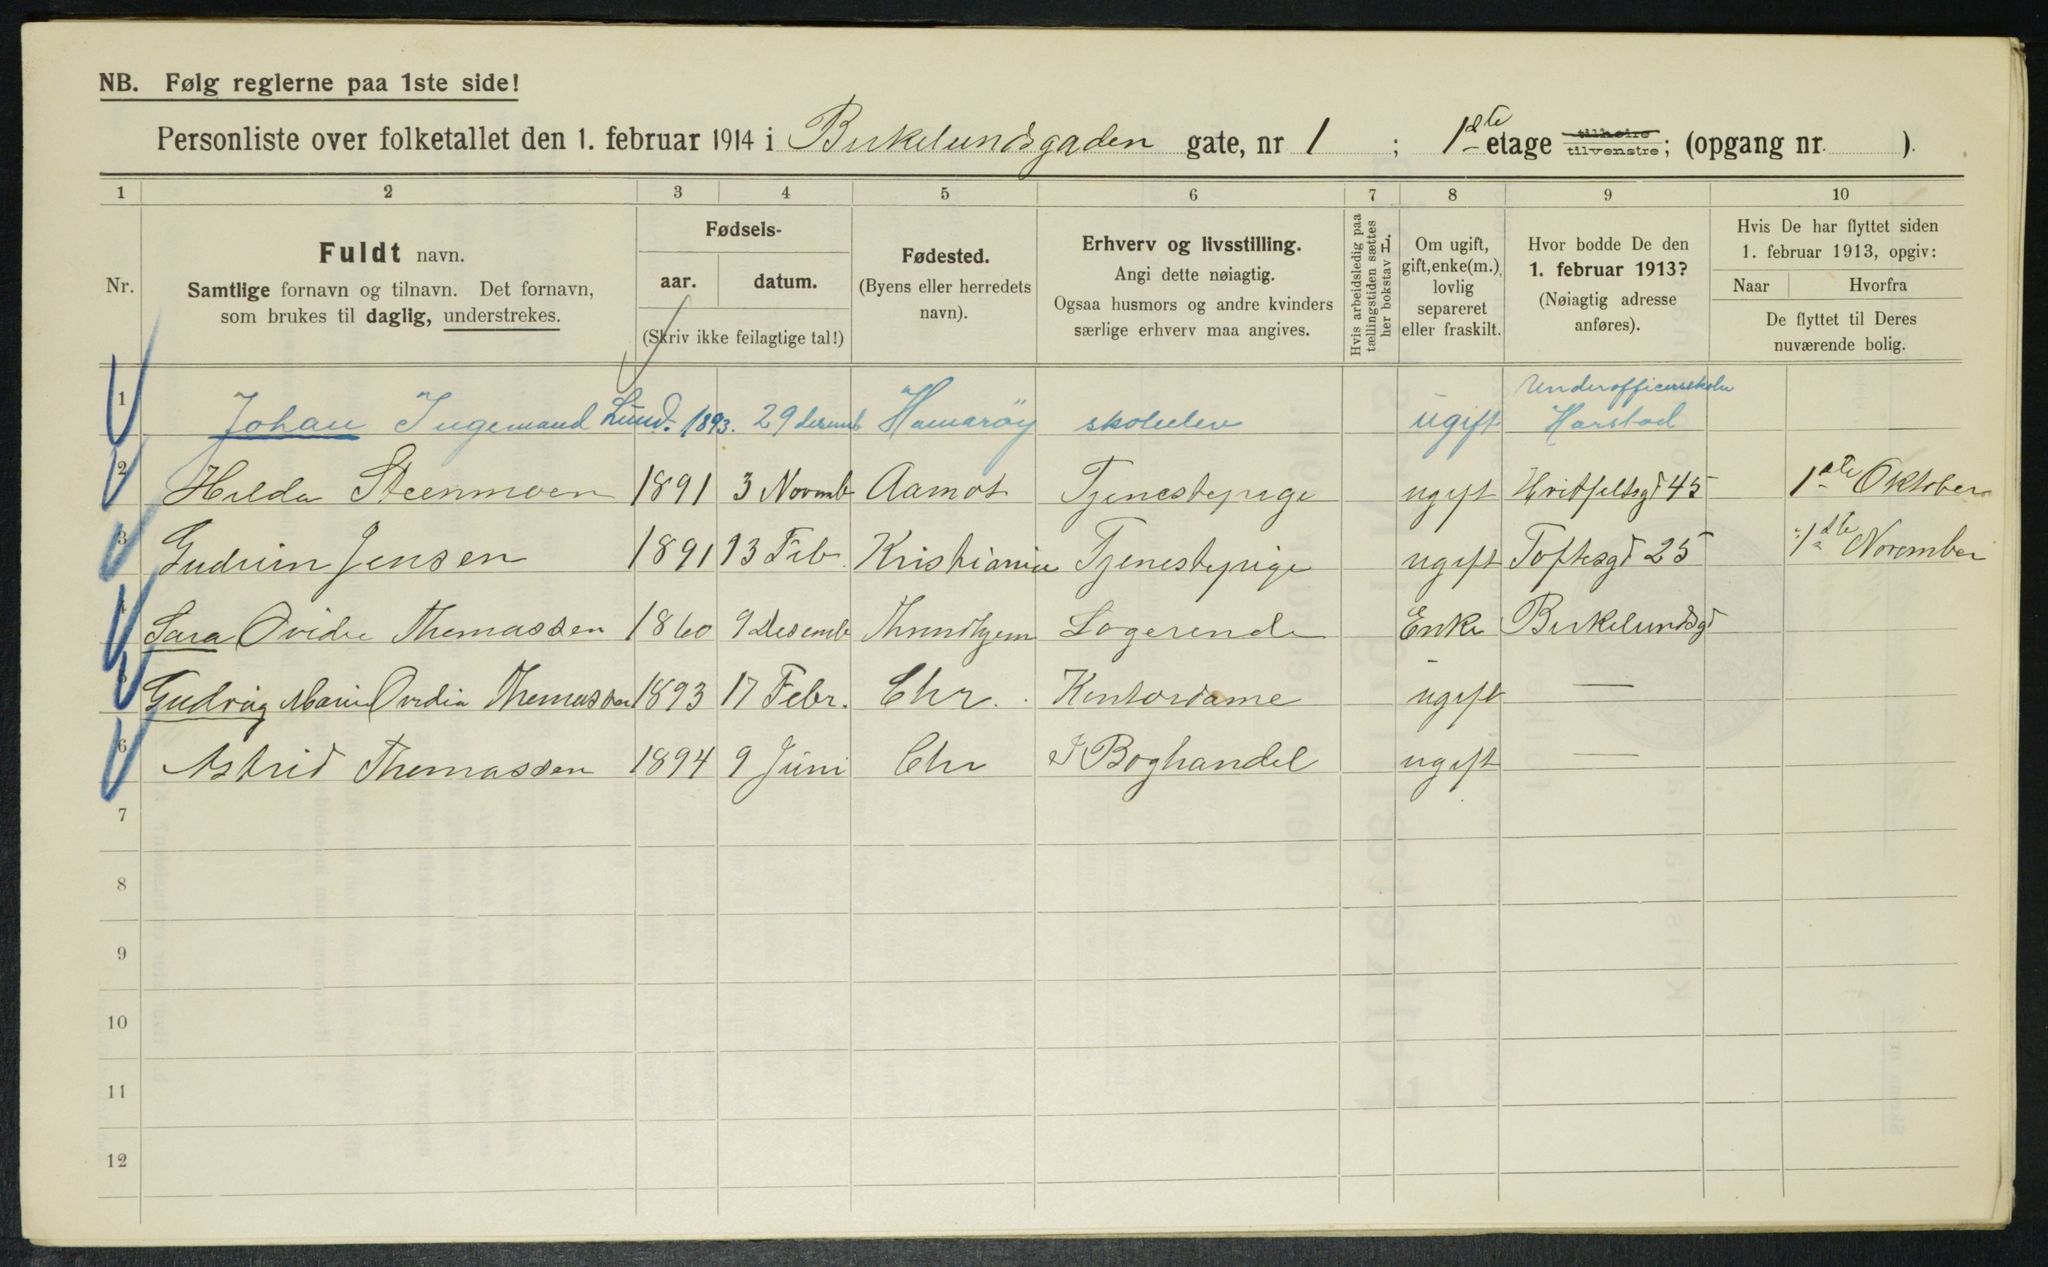 NB. Følg reglerne paa 1ste side!
Personliste over folketallet den 1. februar 1914 i Birkelundsgaden gate, nr 1 ; 1ste etage tilhøire tilvenstre; (opgang nr. ).
1 2 3 4 5 6 7 8 9 10
Nr.
Fuldt navn.
Samtlige fornavn og tilnavn. Det fornavn,
som brukes til daglig, understrekes.
Fødsels-
aar. datum.
(Skriv ikke feilagtige tal!)
Fødested.
(Byens eller herredets
navn).
Erhverv og livsstilling.
Angi dette nøiagtig.
Ogsaa husmors og andre kvinders
særlige erhverv maa angives.
Hvis arbeidsledig paa
tællingstiden sættes
her bokstav L.
Om ugift,
gift, enke(m.),
lovlig
separeret
eller fraskilt.
Hvor bodde De den
1. februar 1913?
(Nøiagtig adresse
anføres).
Hvis De har flyttet siden
1. februar 1913, opgiv:
Naar Hvorfra
De flyttet til Deres
nuværende bolig.
Underofficersskolen
1 Johan Ingemand Lund. 1893. 29 desemb Hamarøy skoleelev ugift Harstad
2 Hilda Steenmoen 1891 3 Novmb Aamot Tjenestepige ugift Hvitfeltsgt 45 1ste Oktober
3 Gudrun Jensen 1891 13 Feb. Kristiania Tjenestepige ugift Toftesgt 25 1ste November
4 Sara Ovidie Thomassen 1860 9 Desemb Throndhjem Logerende Enke Birkelundsgt
5 Gudvig Marie Ovidia Thomassen 1893 17 Febr. Chr. Kontordame ugift —
6 Astrid Thomassen 1894 9 Juni Chr I Boghandel ugift —
7
8
9
10
11
12